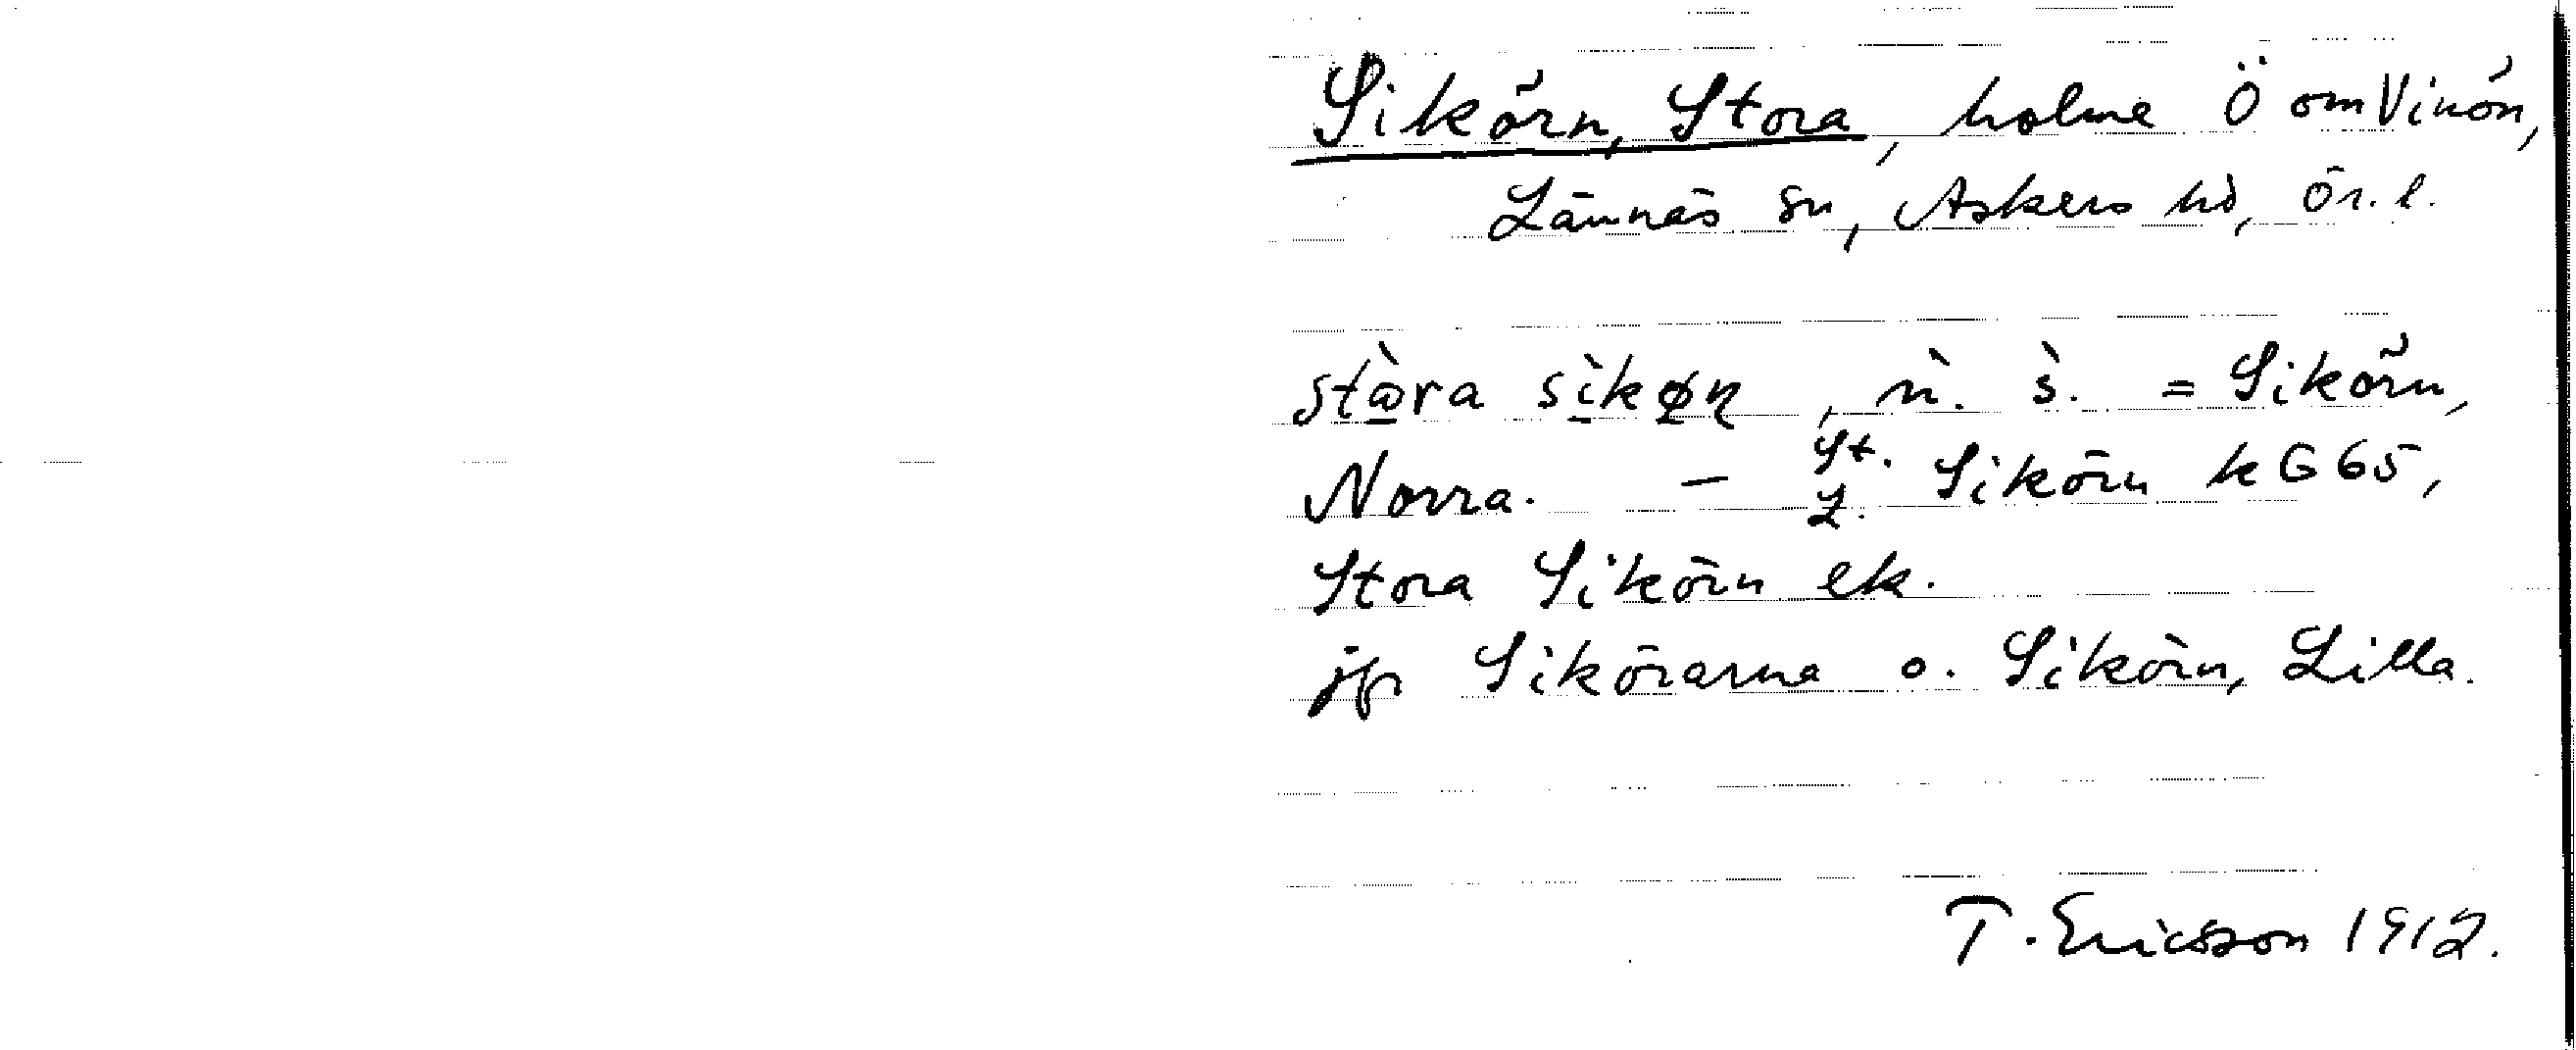 Sikörn, Stora, holme Ö om Vinön,
Lännäs sn, Askers hd, Ör. l.
stɷ̀ra sìkøɳ, ǹ. s̀. = Sikörn,
Norra. — St. Sikörn kG65,
L.
Stora Sikörn ek.
jfr Sikörarna o. Sikörn, Lilla.
T. Ericsson 1912.